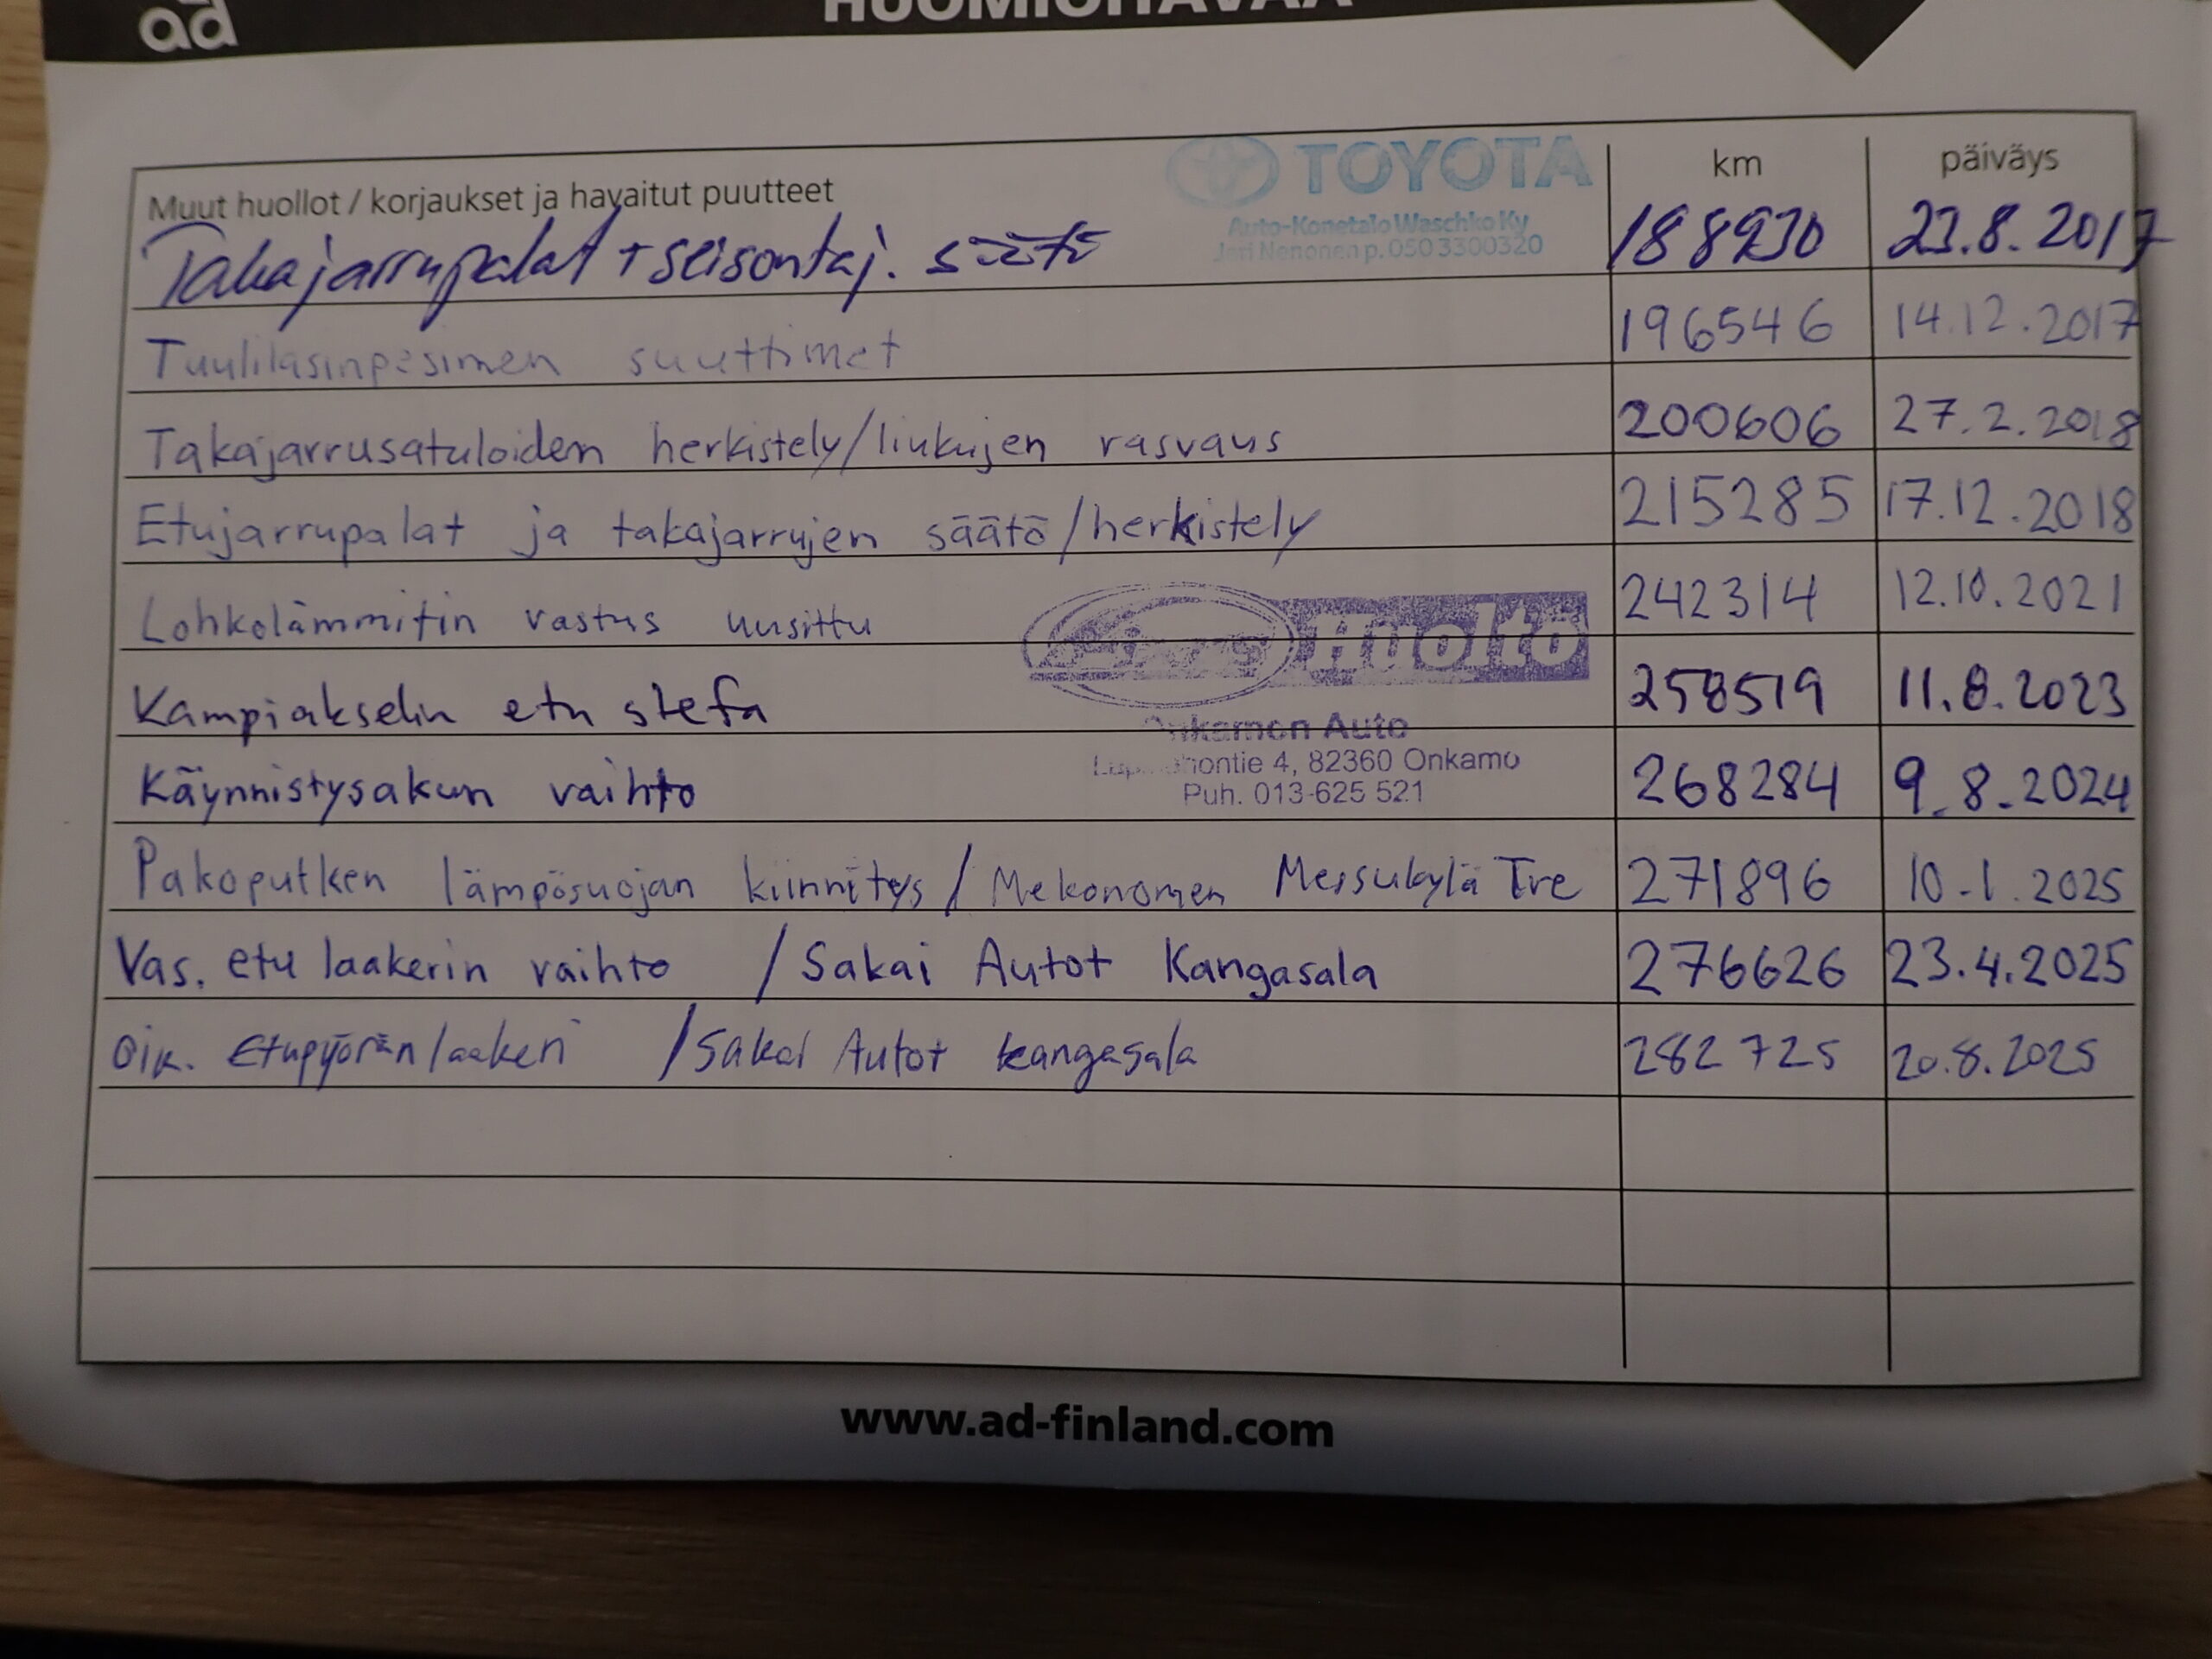 ad HUOMIOITAVAA
TOYOTA
Auto-Konetalo Waschko Ky
Jari Nenonen p. 050 3300320
Muut huollot / korjaukset ja havaitut puutteet km päiväys
Takajarrupalat + seisontaj. säätö 188930 23.8.2017
Tuulilasinpesimen suuttimet 196546 14.12.2017
Takajarrusatuloiden herkistely/liukujen rasvaus 200606 27.2.2018
Etujarrupalat ja takajarrujen säätö/herkistely 215285 17.12.2018
Lohkolämmitin vastus uusittu 242314 12.10.2021
Huolto
Kampiakselin etu stefa 258519 11.8.2023
Onkamon Auto
4, 82360 Onkamo
Puh. 013-625 521
Käynnistysakun vaihto 268284 9.8.2024
Pakoputken lämpösuojan kiinnitys / Mekonomen Messukylä Tre 271896 10.1.2025
Vas. etu laakerin vaihto / Sakai Autot Kangasala 276626 23.4.2025
Oik. Etupyöränlaakeri / Sakai Autot Kangasala 282725 20.8.2025
www.ad-finland.com